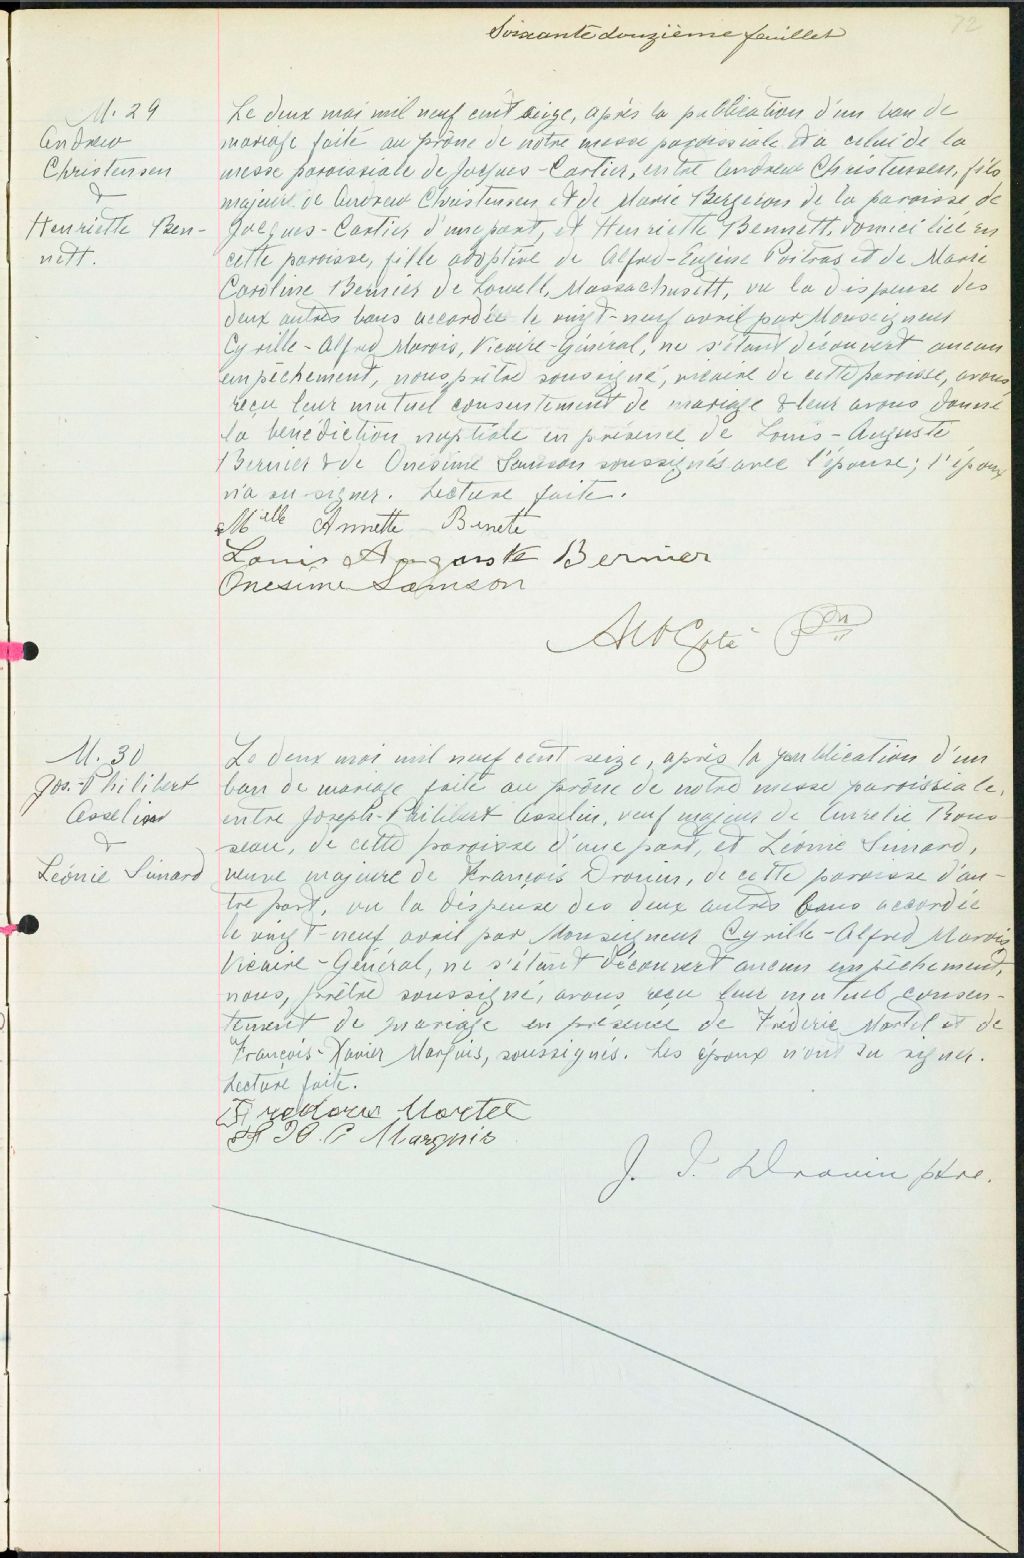 Soixante douzième feuillet
72
M. 29
Andrew
Christensen
&
Henriette Ben-
nett.
Le deux mai mil neuf cent seize, après la publication d'un ban de
mariage faite au prône de notre messe paroissiale et à celui de la
messe paroissiale de Jacques-Cartier, entre Andrew Christensen, fils
majeur de Andrew Christensen et de Marie Bergeron de la paroisse de
Jacques-Cartier d'une part, et Henriette Bennett, domiciliée en
cette paroisse, fille adoptive de Alfred-Eugène Poitras et de Marie
Caroline Bernier de Lowell, Massachusett, vu la dispense des
deux autres bans accordée le vingt-neuf avril par Monseigneur
Cyrille-Alfred Marois, Vicaire-Général, ne s'étant découvert aucun
empêchement, nous, prêtre soussigné, vicaire de cette paroisse, avons
reçu leur mutuel consentement de mariage & leur avons donné
la bénédiction nuptiale en présence de Louis-Auguste
Bernier & de Onésime Samson soussignés avec l'épouse; l'époux
n'a su signer. Lecture faite.
Melle Annette Benete
Louis Auguste Bernier
Onesime Samson
Coté
M. 30
Jos.-Philibert
Asselin
&
Léonie Simard
Le deux mai mil neuf cent seize, après la publication d'un
ban de mariage faite au prône de notre messe paroissiale,
entre Joseph-Philibert Asselin, veuf majeur de Aurélie Rous-
seau, de cette paroisse d'une part, et Léonie Simard,
veuve majeure de François Drouin, de cette paroisse d'au-
tre part, vu la dispense des deux autres bans accordée
le vingt-neuf avril par Monseigneur Cyrille-Alfred Marois
Vicaire-Général, ne s'étant découvert aucun empêchement,
nous, prêtre soussigné, avons reçu leur mutuel consen-
tement de mariage en présence de Fréderic Martel et de
François-Xavier Marquis, soussignés. Les époux n'ont su signer.
Lecture faite.
Martel
Marquis
J. T. Drouin ptre.